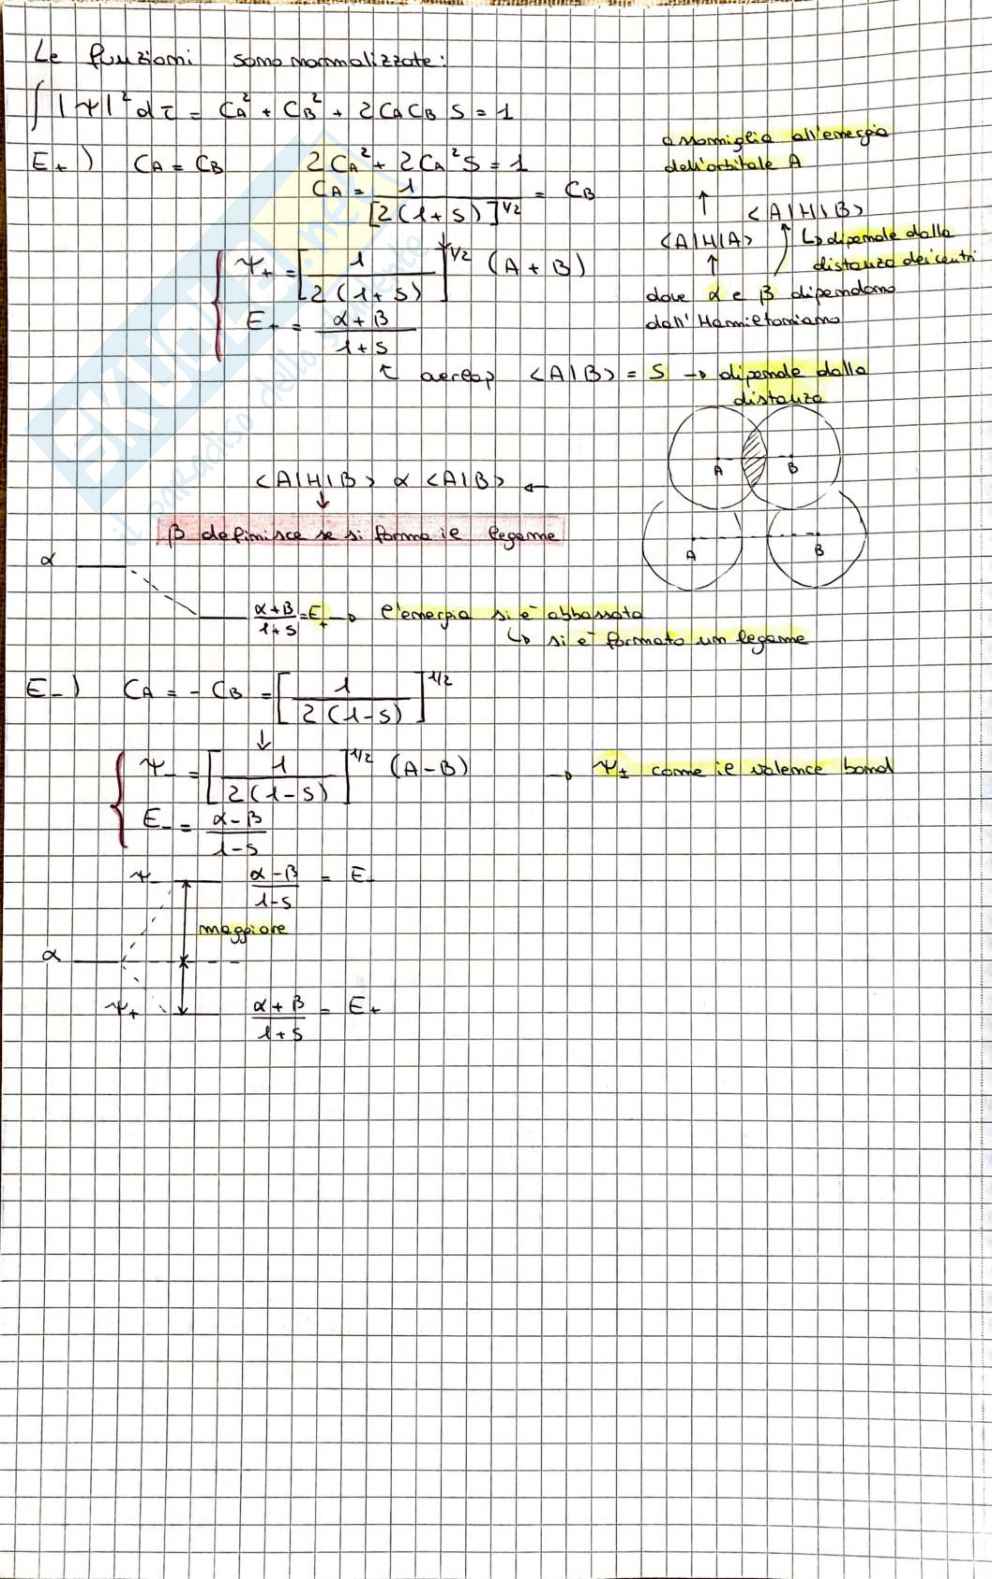 Le funzioni sono normalizzate:
∫|Ψ|² dτ = C_A² + C_B² + 2C_A C_B S = 1
E₊) C_A = C_B 2C_A² + 2C_A² S = 1
C_A = 1/[2(1+S)]^1/2 = C_B
assomiglia all'energia
dell'orbitale A
↑
<A|H|A> <A|H|B>
↳ dipende dalla
distanza dei centri
dove α e β dipendono
dall'Hamiltoniano
Ψ₊ = [1/2(1+S)]^1/2 (A+B)
E₊ = α+β/1+S
↖ overlap <A|B> = S → dipende dalla
distanza
A B
<A|H|B> ∝ <A|B> ←
↓
β definisce se si forma il legame
A B
α
α+β/1+S = E₊ → l'energia si è abbassata
↳ si è formato un legame
E₋) C_A = - C_B = [1/2(1-S)]^1/2
↓
Ψ₋ = [1/2(1-S)]^1/2 (A-B) → Ψ± come il valence bond
E₋ = α-β/1-S
Ψ₋ α-β/1-S = E₋
maggiore
α
Ψ₊ α+β/1+S = E₊